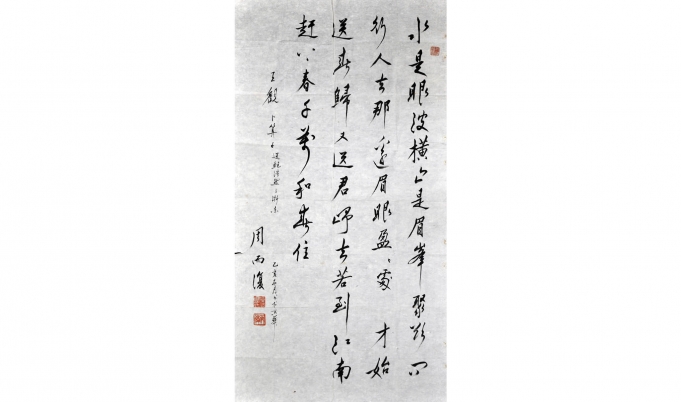 水是眼波橫山是眉峯聚欲问
行人去那邊眉眼盈〻處才始
送春歸又送君歸去若到江南
赶上春千萬和春住
王觀卜算子送鮑浩然之浙東
周而復